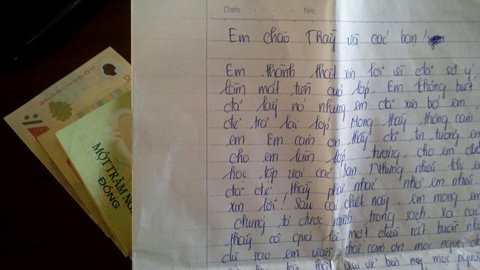 Date No.
Em chào Thầy và các bạn!
Em thành thật xin lỗi vì đã sơ ý
làm mất tiền quỹ lớp. Em không biết
đã lấy nó nhưng em đã xin bố em
để trả lại lớp. Mong thầy thông cảm
em. Em cảm ơn thầy đã tin tưởng em
cho em làm lớp trưởng, cho em
học lớp với các bạn. Nhưng nhiều khi em
đã để thầy phải nhắc nhở em nhiều
xin lỗi! Sau cái chết này em mong em
chứng tỏ được mình trong sạch. Xa các
thầy cô quả là một điều rất buồn
dù sao em vẫn phải cảm ơn mọi người
mọi người
MỘT TRĂM NG
ĐỒNG